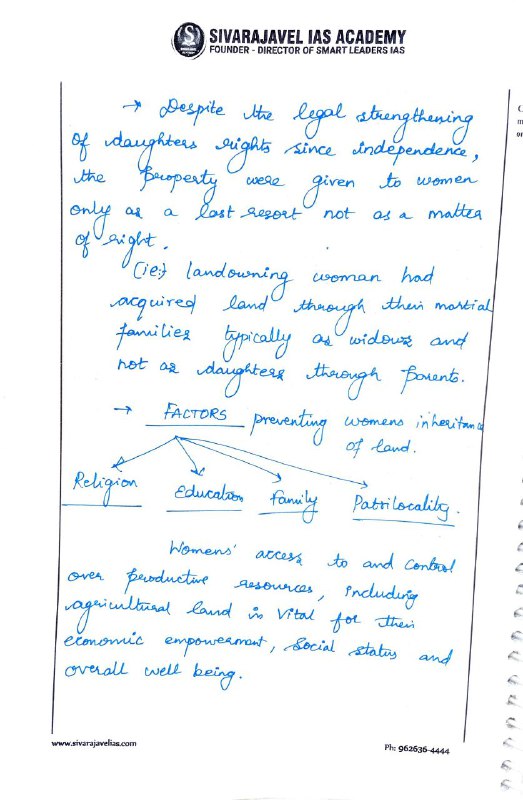 SIVARAJAVEL IAS ACADEMY
FOUNDER - DIRECTOR OF SMART LEADERS IAS
→ Despite the legal strengthening
of daughters rights since independence,
the property were given to women
only as a last resort not as a matter
of right.
(ie:) landowning woman had
acquired land through their martial
families typically as widows and
not as daughters through parents.
→ FACTORS preventing womens inheritance
of land.
Religion Education Family Patrilocality.
Womens' access to and control
over productive resources, including
agricultural land is vital for their
economic empowerment, social status and
overall well being.
www.sivarajavelias.com
Ph: 962636-4444